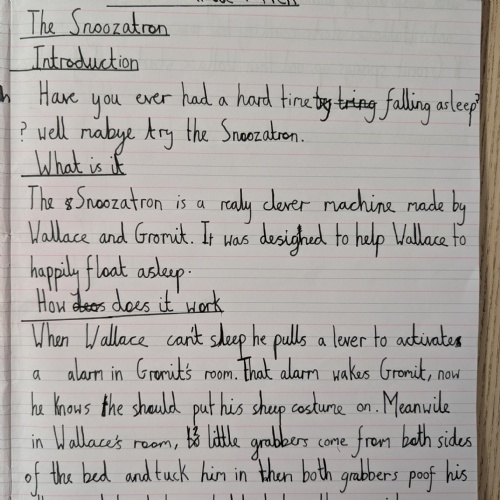 The Snoozatron
Introduction
Have you ever had a hard time by tring falling asleep?
? well mabye try the Snoozatron.
What is it
The Snoozatron is a realy clever machine made by
Wallace and Gromit. It was designed to help Wallace to
happily float asleep.
How does does it work
When Wallace can't sleep he pulls a lever to activates
a alarm in Gromit's room. That alarm wakes Gromit, now
he knows the should put his sheep costume on. Meanwile
in Wallace's room, little grabbers come from both sides
of the bed and tuck him in then both grabbers poof his